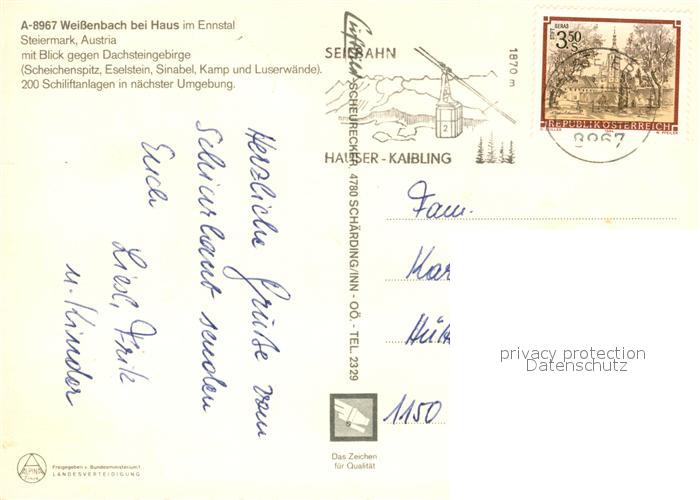 A-8967 Weißenbach bei Haus im Ennstal
Steiermark, Austria
mit Blick gegen Dachsteingebirge
(Scheichenspitz, Eselstein, Sinabel, Kamp und Luserwände).
200 Schiliftanlagen in nächster Umgebung.
SEILBAHN
1870 m
2
HAUSER-KAIBLING
STIFT GERAS
3.50
S
REPUBLIK ÖSTERREICH
8967
SCHEURECKER, 4780 SCHÄRDING/INN - OÖ. - TEL. 2329
Herzliche Grüße vom
Schiurlaub senden
Euch
Liesl, Fritz
u. Kinder
Fam.
Kar
Hüt
1150
privacy protection
Datenschutz
Das Zeichen
für Qualität
ALPINE
Freigegeben v. Bundesministerium f.
LANDESVERTEIDIGUNG